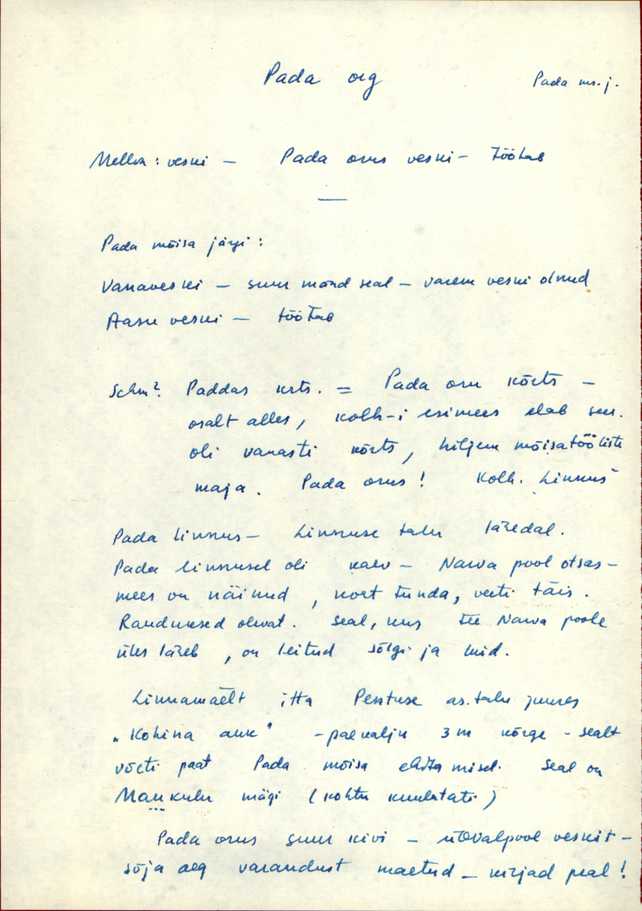 Pada org
Pada ms. j.
Mellin: veski – Pada orus veski – töötab
Pada mõisa järgi:
Vanaveski – suur mänd seal – varem veski olnud
Aasu veski – töötab
Schm². Paddas krts. = Pada oru kõrts –
osalt alles, kolh-i esimees elab sees.
oli vanasti kõrts, hiljem mõisatööliste
maja. Pada orus! Kolh. Linnus
Pada linnus – Linnuse talu lähedal.
Pada linnusel oli kaev – Narva pool otsas –
mees on näinud, koet tunda, vett täis.
Rauduksed olevat. Seal, kus tee Narva poole
üles läheb, on leitud sõlgi ja muid.
Linnamäelt itta Pestuse as. talu juures
"Kohina auk" – paekalju 3 m kõrge – sealt
võeti paat Pada mõisa ehitamisel. Seal on
Maukulu mägi (kohtu kuulutati)
Pada orus suur kivi – ülevalpool veskit –
sõja aeg varandust maetud – kirjad peal!